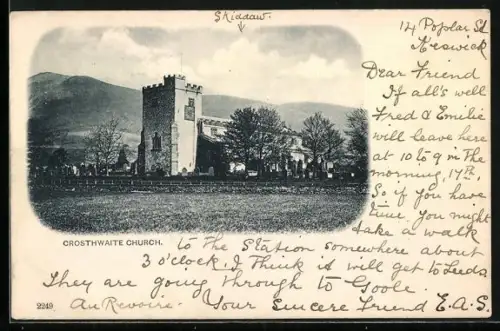 Skiddaw.
14 Poplar St
Keswick
Dear Friend
If all's well
Fred & Emilie
will leave here
at 10 to 9 in the
morning, 17th,
So if you have
time, you might
take a walk
to the Station somewhere about
3 o'clock I think it will get to Leeds
They are going through to Goole.
Au Revoire. Your sincere friend E.A.S.
CROSTHWAITE CHURCH.
2249